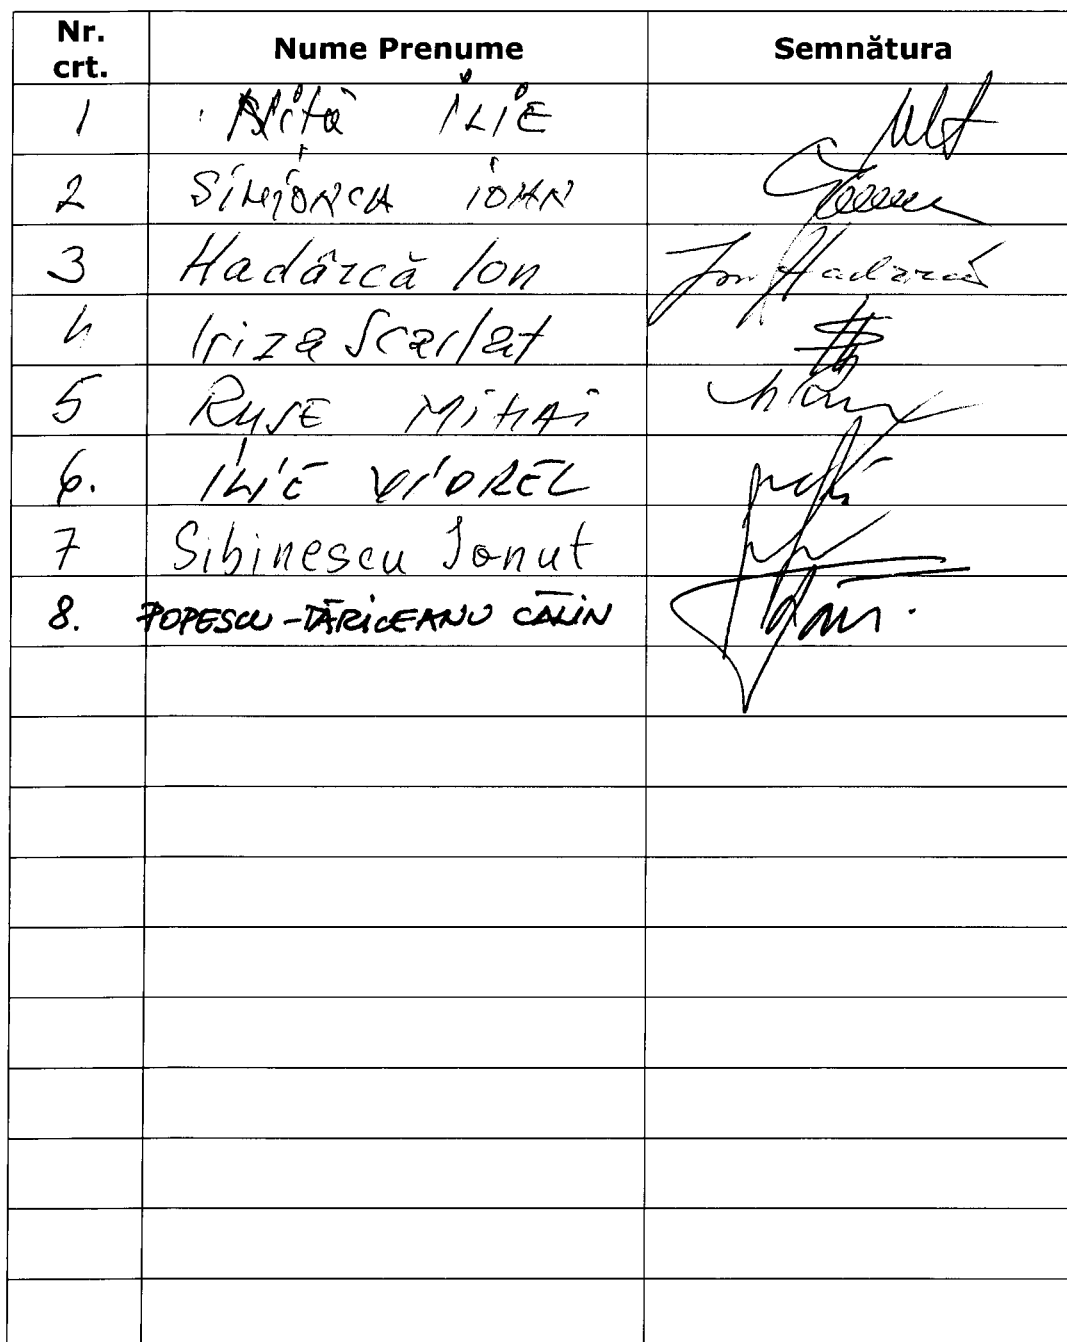 Nr. crt. Nume Prenume Semnătura
1 Niță ILIE
2 SIMIONCA IOAN
3 Hadârcă Ion Ion Hadârcă
4 Iriza Scarlat
5 RUSE MIHAI
6. ILIE VIOREL
7 Sibinescu Ionut
8. POPESCU-TĂRICEANU CĂLIN